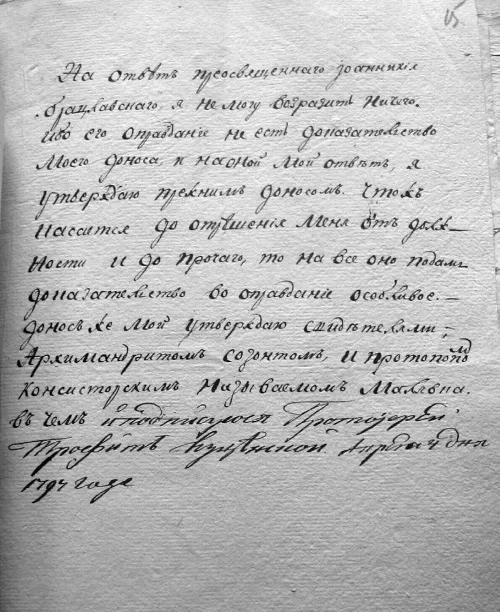 15.
На отвѣтъ преосвященнаго Іоанникія
Брацлавскаго, я не могу возразить ничего.
ибо его оправданіе не есть доказательство
моего доноса, и на оной мой отвѣтъ, я
утверждаю прежнимъ доносомъ. Что жъ
касается до отрѣшенія меня отъ долж-
ности и до прочаго, то на все оно подамъ
доказательство во оправданіе особливое.
доносъ же мой утверждаю свидѣтелями,
Архимандритомъ созонтомъ, и протопопомъ
консисторскимъ называемомъ
въ чемъ и подписуюся Протоіерей
Апреля 4 дня
1797 года